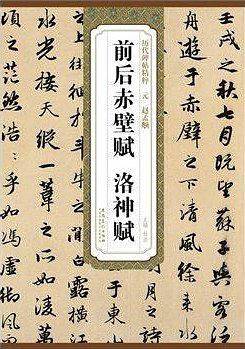 壬戌之秋七月既望蘇子與客
舟遊於赤壁之下清風徐
历代碑帖精粹 元 赵孟頫
前后赤壁赋 洛神赋
之上徘徊於斗牛之間白露橫江
水光接天縱一葦之所如
之茫然浩浩乎如馮虛御風